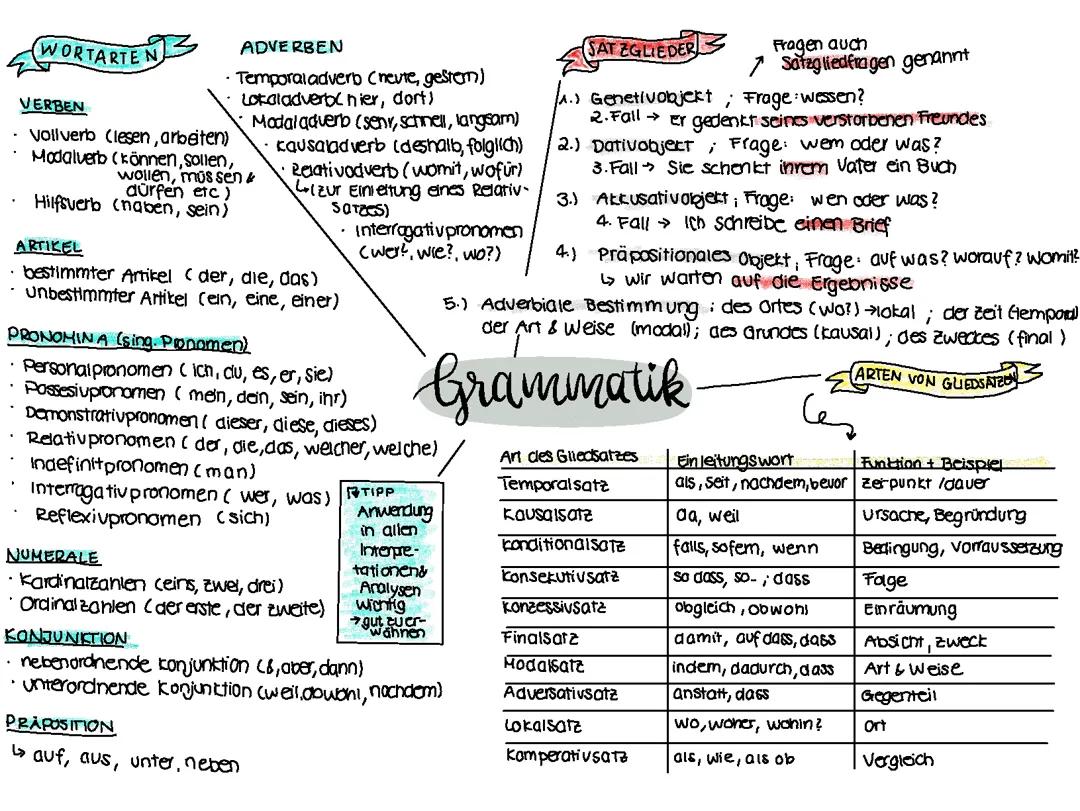 WORTARTEN
VERBEN
· Vollverb (lesen, arbeiten)
· Modalverb (können, sollen,
wollen, müssen &
dürfen etc)
· Hilfsverb (haben, sein)
ARTIKEL
· bestimmter Artikel ( der, die, das)
· unbestimmter Artikel (ein, eine, einer)
PRONOMINA (sing. Pronomen)
· Personalpronomen ( ich, du, es, er, sie)
· Possesivpronomen ( mein, dein, sein, ihr)
· Demonstrativpronomen ( dieser, diese, dieses)
· Relativpronomen ( der, die, das, welcher, welche)
· Indefinitpronomen (man)
· Interrogativpronomen ( wer, was)
· Reflexivpronomen (sich)
NUMERALE
· Kardinalzahlen (eins, zwei, drei)
· Ordinalzahlen (der erste, der zweite)
KONJUNKTION
· nebenordnende Konjunktion (&, aber, dann)
· unterordnende Konjunktion (weil, obwohl, nachdem)
PRÄPOSITION
↳ auf, aus, unter, neben
ADVERBEN
· Temporaladverb (heute, gestern)
· Lokaladverb( hier, dort)
· Modaladverb (sehr, schnell, langsam)
· Kausaladverb (deshalb, folglich)
· Relativadverb (womit, wofür)
↳ (zur Einleitung eines Relativ-
satzes)
· Interrogativpronomen
(wer?, wie?, wo?)
Grammatik
TIPP
Anwendung
in allen
Interpre-
tationen &
Analysen
wichtig
→ gut zu er-
wähnen
SATZGLIEDER
Fragen auch
Satzgliedfragen genannt
1.) Genetivobjekt ; Frage: wessen?
2. Fall → Er gedenkt seines verstorbenen Freundes
2.) Dativobjekt ; Frage: wem oder was?
3. Fall → Sie schenkt ihrem Vater ein Buch
3.) Akkusativobjekt ; Frage: wen oder was?
4. Fall → Ich schreibe einen Brief
4.) Präpositionales Objekt ; Frage: auf was? worauf? womit?
↳ wir warten auf die Ergebnisse
5.) Adverbiale Bestimmung : des Ortes (wo?) → lokal ; der Zeit (temporal)
der Art & Weise (modal); des Grundes (kausal) ; des Zweckes (final )
ARTEN VON GLIEDSÄTZEN
Art des Gliedsatzes Einleitungswort Funktion + Beispiel
Temporalsatz als, seit, nachdem, bevor Zeitpunkt / dauer
Kausalsatz da, weil Ursache, Begründung
Konditionalsatz falls, sofern, wenn Bedingung, Vorraussetzung
Konsekutivsatz so dass, so- ; dass Folge
Konzessivsatz obgleich, obwohl Einräumung
Finalsatz damit, auf dass, dass Absicht, Zweck
Modalsatz indem, dadurch, dass Art & Weise
Adversativsatz anstatt, dass Gegenteil
Lokalsatz wo, woher, wohin? Ort
Komperativsatz als, wie, als ob Vergleich